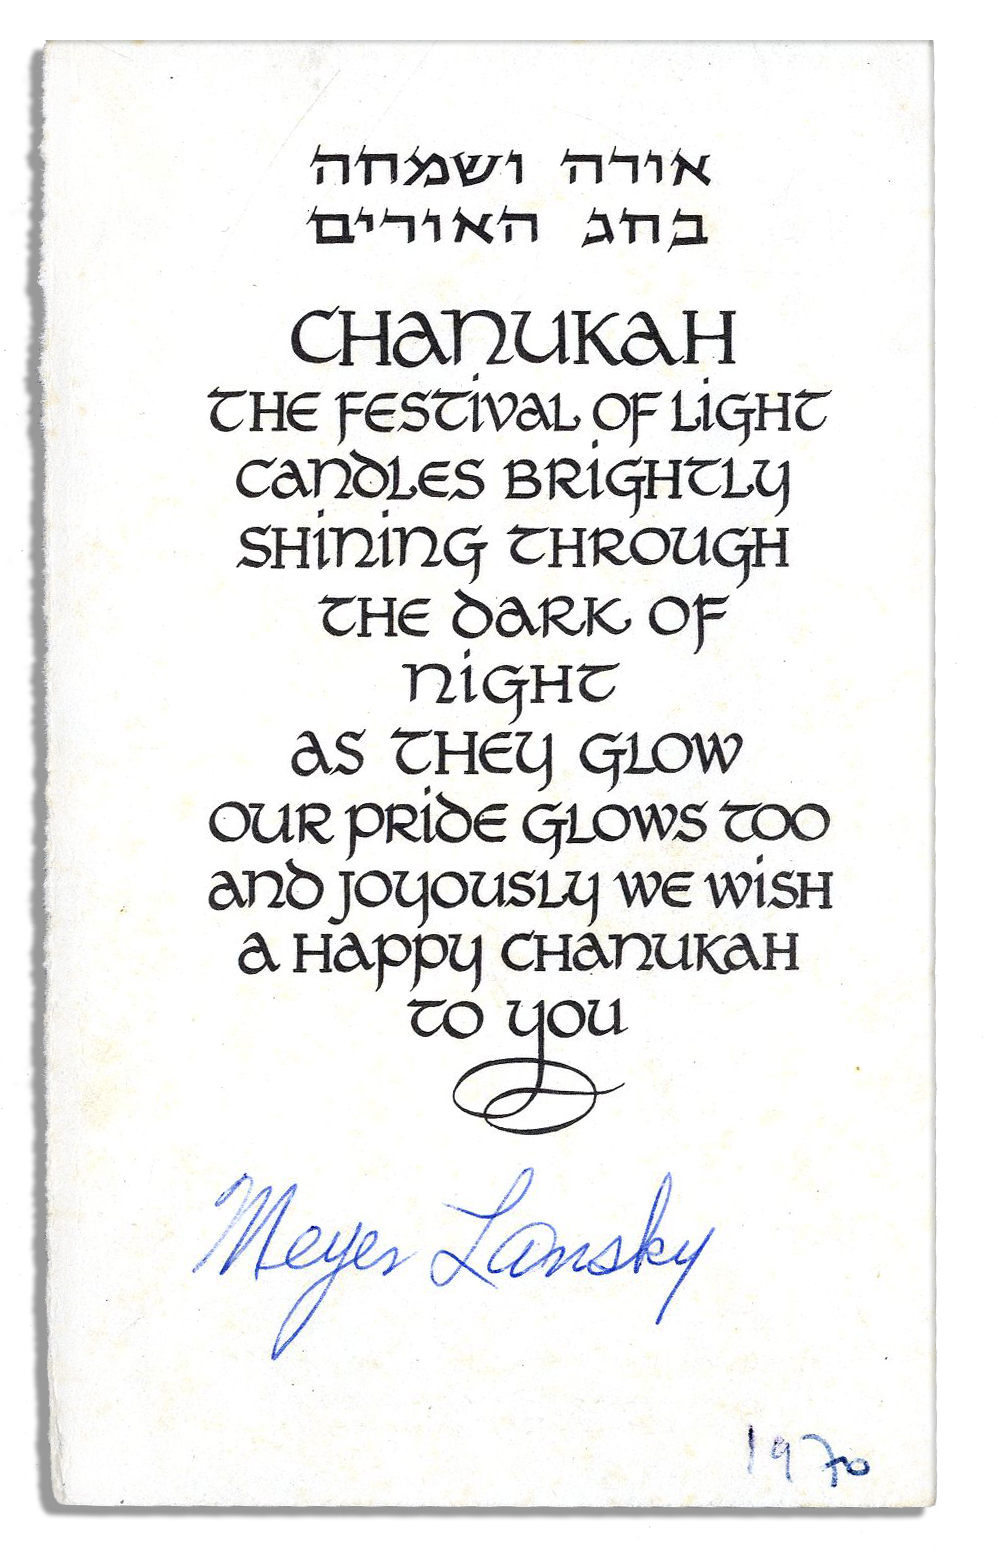 אורה ושמחה
בחג האורים
CHANUKAH
THE FESTIVAL OF LIGHT
CANDLES BRIGHTLY
SHINING THROUGH
THE DARK OF
NIGHT
AS THEY GLOW
OUR PRIDE GLOWS TOO
AND JOYOUSLY WE WISH
A HAPPY CHANUKAH
TO YOU
Meyer Lansky
1970